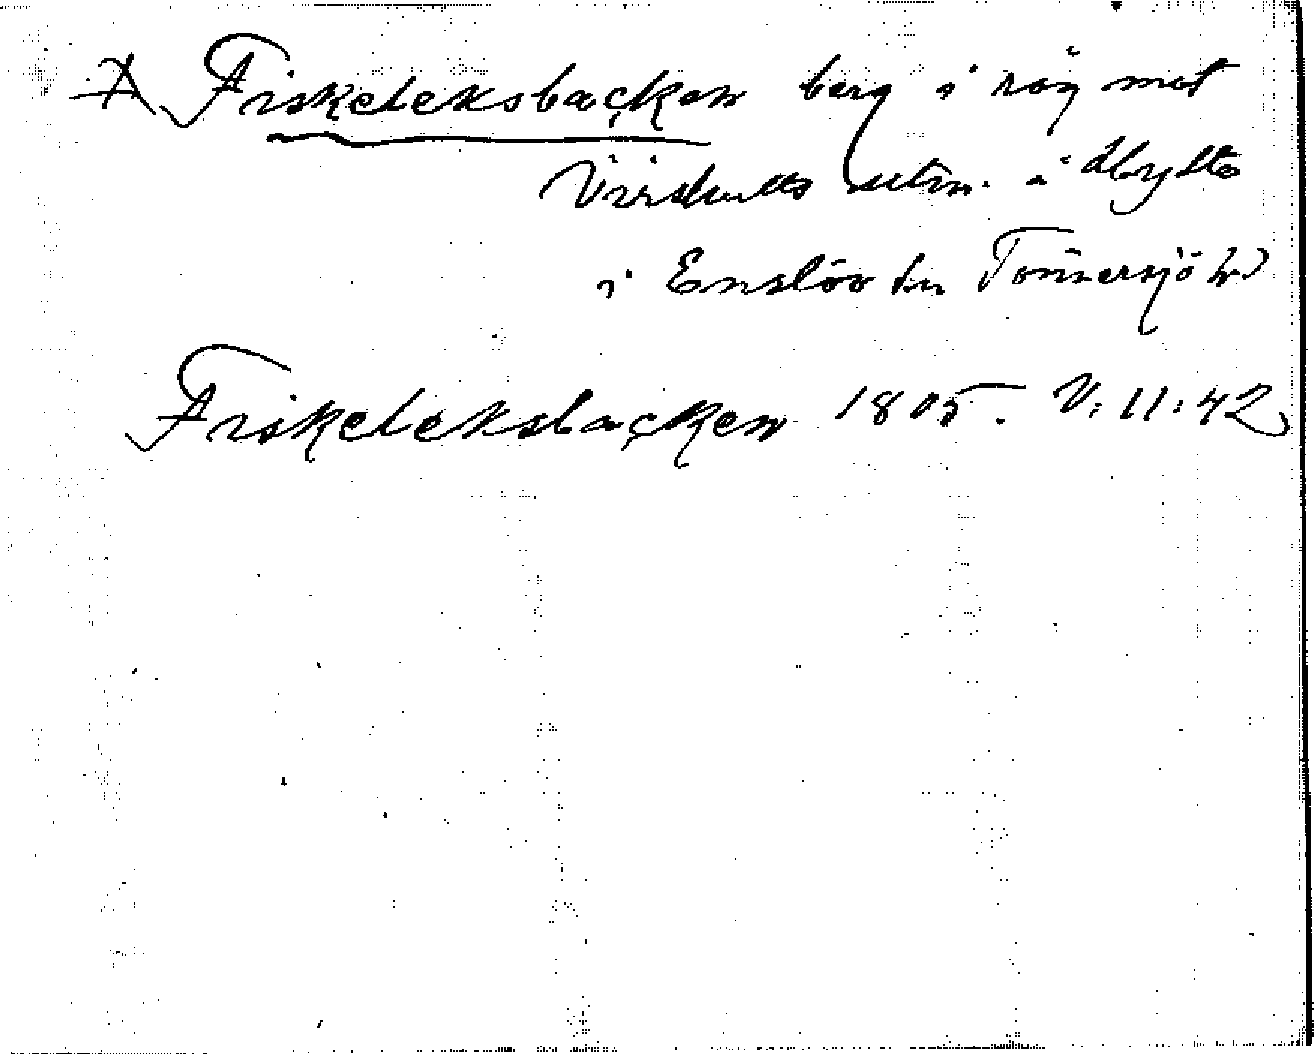 A Fiskeleksbacken berg i råg mot
Virshults utm. å Hylte
i Enslöv sn Tönnersjö hd
Fiskeleksbacken 1805. V: 11: 42